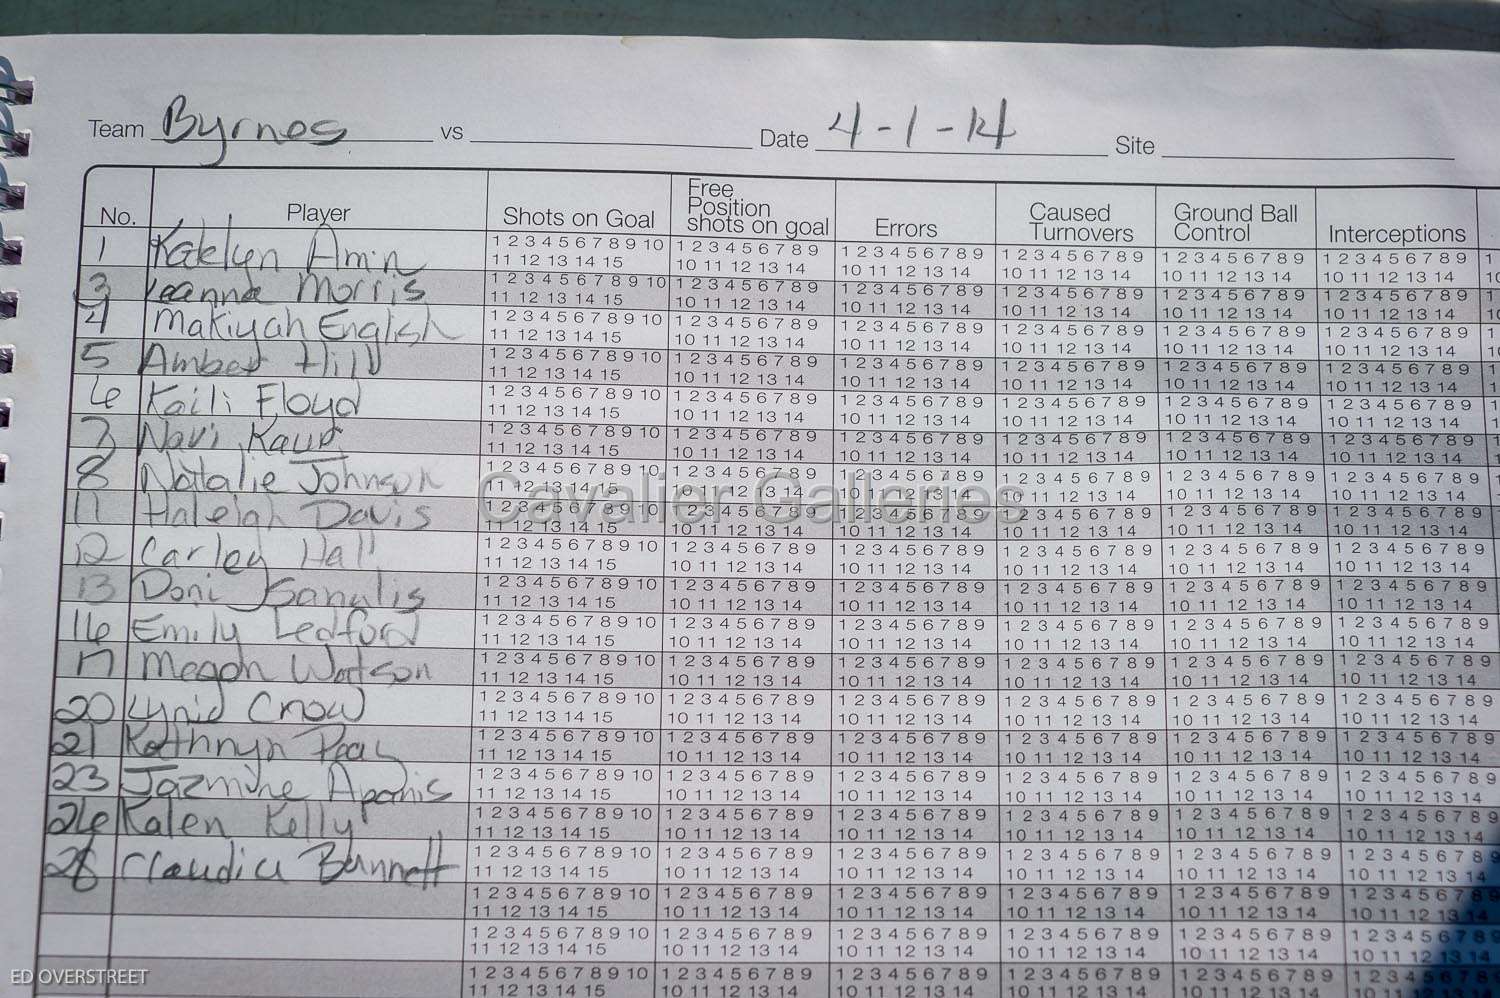 Team Byrnes vs Date 4-1-14 Site
No. Player Shots on Goal Free Position shots on goal Errors Caused Turnovers Ground Ball Control Interceptions
1 Katelyn Amin 1 2 3 4 5 6 7 8 9 10 1 2 3 4 5 6 7 8 9 1 2 3 4 5 6 7 8 9 1 2 3 4 5 6 7 8 9 1 2 3 4 5 6 7 8 9 1 2 3 4 5 6 7 8 9 1
11 12 13 14 15 10 11 12 13 14 10 11 12 13 14 10 11 12 13 14 10 11 12 13 14 10 11 12 13 14
3 Leanna Morris 1 2 3 4 5 6 7 8 9 10 1 2 3 4 5 6 7 8 9 1 2 3 4 5 6 7 8 9 1 2 3 4 5 6 7 8 9 1 2 3 4 5 6 7 8 9 1 2 3 4 5 6 7 8 9
11 12 13 14 15 10 11 12 13 14 10 11 12 13 14 10 11 12 13 14 10 11 12 13 14 10 11 12 13 14
4 Makiyah English 1 2 3 4 5 6 7 8 9 10 1 2 3 4 5 6 7 8 9 1 2 3 4 5 6 7 8 9 1 2 3 4 5 6 7 8 9 1 2 3 4 5 6 7 8 9 1 2 3 4 5 6 7 8 9
11 12 13 14 15 10 11 12 13 14 10 11 12 13 14 10 11 12 13 14 10 11 12 13 14 10 11 12 13 14
5 Amber Hill 1 2 3 4 5 6 7 8 9 10 1 2 3 4 5 6 7 8 9 1 2 3 4 5 6 7 8 9 1 2 3 4 5 6 7 8 9 1 2 3 4 5 6 7 8 9 1 2 3 4 5 6 7 8 9
11 12 13 14 15 10 11 12 13 14 10 11 12 13 14 10 11 12 13 14 10 11 12 13 14 10 11 12 13 14
6 Kaili Floyd 1 2 3 4 5 6 7 8 9 10 1 2 3 4 5 6 7 8 9 1 2 3 4 5 6 7 8 9 1 2 3 4 5 6 7 8 9 1 2 3 4 5 6 7 8 9 1 2 3 4 5 6 7 8 9
11 12 13 14 15 10 11 12 13 14 10 11 12 13 14 10 11 12 13 14 10 11 12 13 14 10 11 12 13 14
7 Navi Kaur 1 2 3 4 5 6 7 8 9 10 1 2 3 4 5 6 7 8 9 1 2 3 4 5 6 7 8 9 1 2 3 4 5 6 7 8 9 1 2 3 4 5 6 7 8 9 1 2 3 4 5 6 7 8 9
11 12 13 14 15 10 11 12 13 14 10 11 12 13 14 10 11 12 13 14 10 11 12 13 14 10 11 12 13 14
8 Natalie Johnson 1 2 3 4 5 6 7 8 9 10 1 2 3 4 5 6 7 8 9 1 2 3 4 5 6 7 8 9 1 2 3 4 5 6 7 8 9 1 2 3 4 5 6 7 8 9 1 2 3 4 5 6 7 8 9
11 12 13 14 15 10 11 12 13 14 10 11 12 13 14 10 11 12 13 14 10 11 12 13 14 10 11 12 13 14
Cavalier Galleries
11 Haleigh Davis 1 2 3 4 5 6 7 8 9 10 1 2 3 4 5 6 7 8 9 1 2 3 4 5 6 7 8 9 1 2 3 4 5 6 7 8 9 1 2 3 4 5 6 7 8 9 1 2 3 4 5 6 7 8 9
11 12 13 14 15 10 11 12 13 14 10 11 12 13 14 10 11 12 13 14 10 11 12 13 14 10 11 12 13 14
12 Carley Hall 1 2 3 4 5 6 7 8 9 10 1 2 3 4 5 6 7 8 9 1 2 3 4 5 6 7 8 9 1 2 3 4 5 6 7 8 9 1 2 3 4 5 6 7 8 9 1 2 3 4 5 6 7 8 9
11 12 13 14 15 10 11 12 13 14 10 11 12 13 14 10 11 12 13 14 10 11 12 13 14 10 11 12 13 14
13 Doni 1 2 3 4 5 6 7 8 9 10 1 2 3 4 5 6 7 8 9 1 2 3 4 5 6 7 8 9 1 2 3 4 5 6 7 8 9 1 2 3 4 5 6 7 8 9 1 2 3 4 5 6 7 8 9
11 12 13 14 15 10 11 12 13 14 10 11 12 13 14 10 11 12 13 14 10 11 12 13 14 10 11 12 13 14
16 Emily Ledford 1 2 3 4 5 6 7 8 9 10 1 2 3 4 5 6 7 8 9 1 2 3 4 5 6 7 8 9 1 2 3 4 5 6 7 8 9 1 2 3 4 5 6 7 8 9 1 2 3 4 5 6 7 8 9
11 12 13 14 15 10 11 12 13 14 10 11 12 13 14 10 11 12 13 14 10 11 12 13 14 10 11 12 13 14
17 Megan Watson 1 2 3 4 5 6 7 8 9 10 1 2 3 4 5 6 7 8 9 1 2 3 4 5 6 7 8 9 1 2 3 4 5 6 7 8 9 1 2 3 4 5 6 7 8 9 1 2 3 4 5 6 7 8 9
11 12 13 14 15 10 11 12 13 14 10 11 12 13 14 10 11 12 13 14 10 11 12 13 14 10 11 12 13 14
20 Crow 1 2 3 4 5 6 7 8 9 10 1 2 3 4 5 6 7 8 9 1 2 3 4 5 6 7 8 9 1 2 3 4 5 6 7 8 9 1 2 3 4 5 6 7 8 9 1 2 3 4 5 6 7 8 9
11 12 13 14 15 10 11 12 13 14 10 11 12 13 14 10 11 12 13 14 10 11 12 13 14 10 11 12 13 14
21 Kathryn 1 2 3 4 5 6 7 8 9 10 1 2 3 4 5 6 7 8 9 1 2 3 4 5 6 7 8 9 1 2 3 4 5 6 7 8 9 1 2 3 4 5 6 7 8 9 1 2 3 4 5 6 7 8 9
11 12 13 14 15 10 11 12 13 14 10 11 12 13 14 10 11 12 13 14 10 11 12 13 14 10 11 12 13 14
23 Jazmine 1 2 3 4 5 6 7 8 9 10 1 2 3 4 5 6 7 8 9 1 2 3 4 5 6 7 8 9 1 2 3 4 5 6 7 8 9 1 2 3 4 5 6 7 8 9 1 2 3 4 5 6 7 8 9
11 12 13 14 15 10 11 12 13 14 10 11 12 13 14 10 11 12 13 14 10 11 12 13 14 10 11 12 13 14
26 Kalen Kelly 1 2 3 4 5 6 7 8 9 10 1 2 3 4 5 6 7 8 9 1 2 3 4 5 6 7 8 9 1 2 3 4 5 6 7 8 9 1 2 3 4 5 6 7 8 9 1 2 3 4 5 6 7 8 9
11 12 13 14 15 10 11 12 13 14 10 11 12 13 14 10 11 12 13 14 10 11 12 13 14 10 11 12 13 14
28 Claudia Bunnett 1 2 3 4 5 6 7 8 9 10 1 2 3 4 5 6 7 8 9 1 2 3 4 5 6 7 8 9 1 2 3 4 5 6 7 8 9 1 2 3 4 5 6 7 8 9 1 2 3 4 5 6 7 8 9
11 12 13 14 15 10 11 12 13 14 10 11 12 13 14 10 11 12 13 14 10 11 12 13 14 10 11 12 13 14
1 2 3 4 5 6 7 8 9 10 1 2 3 4 5 6 7 8 9 1 2 3 4 5 6 7 8 9 1 2 3 4 5 6 7 8 9 1 2 3 4 5 6 7 8 9 1 2 3 4 5 6 7 8 9
11 12 13 14 15 10 11 12 13 14 10 11 12 13 14 10 11 12 13 14 10 11 12 13 14 10 11 12 13 14
1 2 3 4 5 6 7 8 9 10 1 2 3 4 5 6 7 8 9 1 2 3 4 5 6 7 8 9 1 2 3 4 5 6 7 8 9 1 2 3 4 5 6 7 8 9 1 2 3 4 5 6 7 8 9
11 12 13 14 15 10 11 12 13 14 10 11 12 13 14 10 11 12 13 14 10 11 12 13 14 10 11 12 13 14
1 2 3 4 5 6 7 8 9 10 1 2 3 4 5 6 7 8 9 1 2 3 4 5 6 7 8 9 1 2 3 4 5 6 7 8 9 1 2 3 4 5 6 7 8 9 1 2 3 4 5 6 7 8 9
11 12 13 14 15 10 11 12 13 14 10 11 12 13 14 10 11 12 13 14 10 11 12 13 14 10 11 12 13 14
ED OVERSTREET